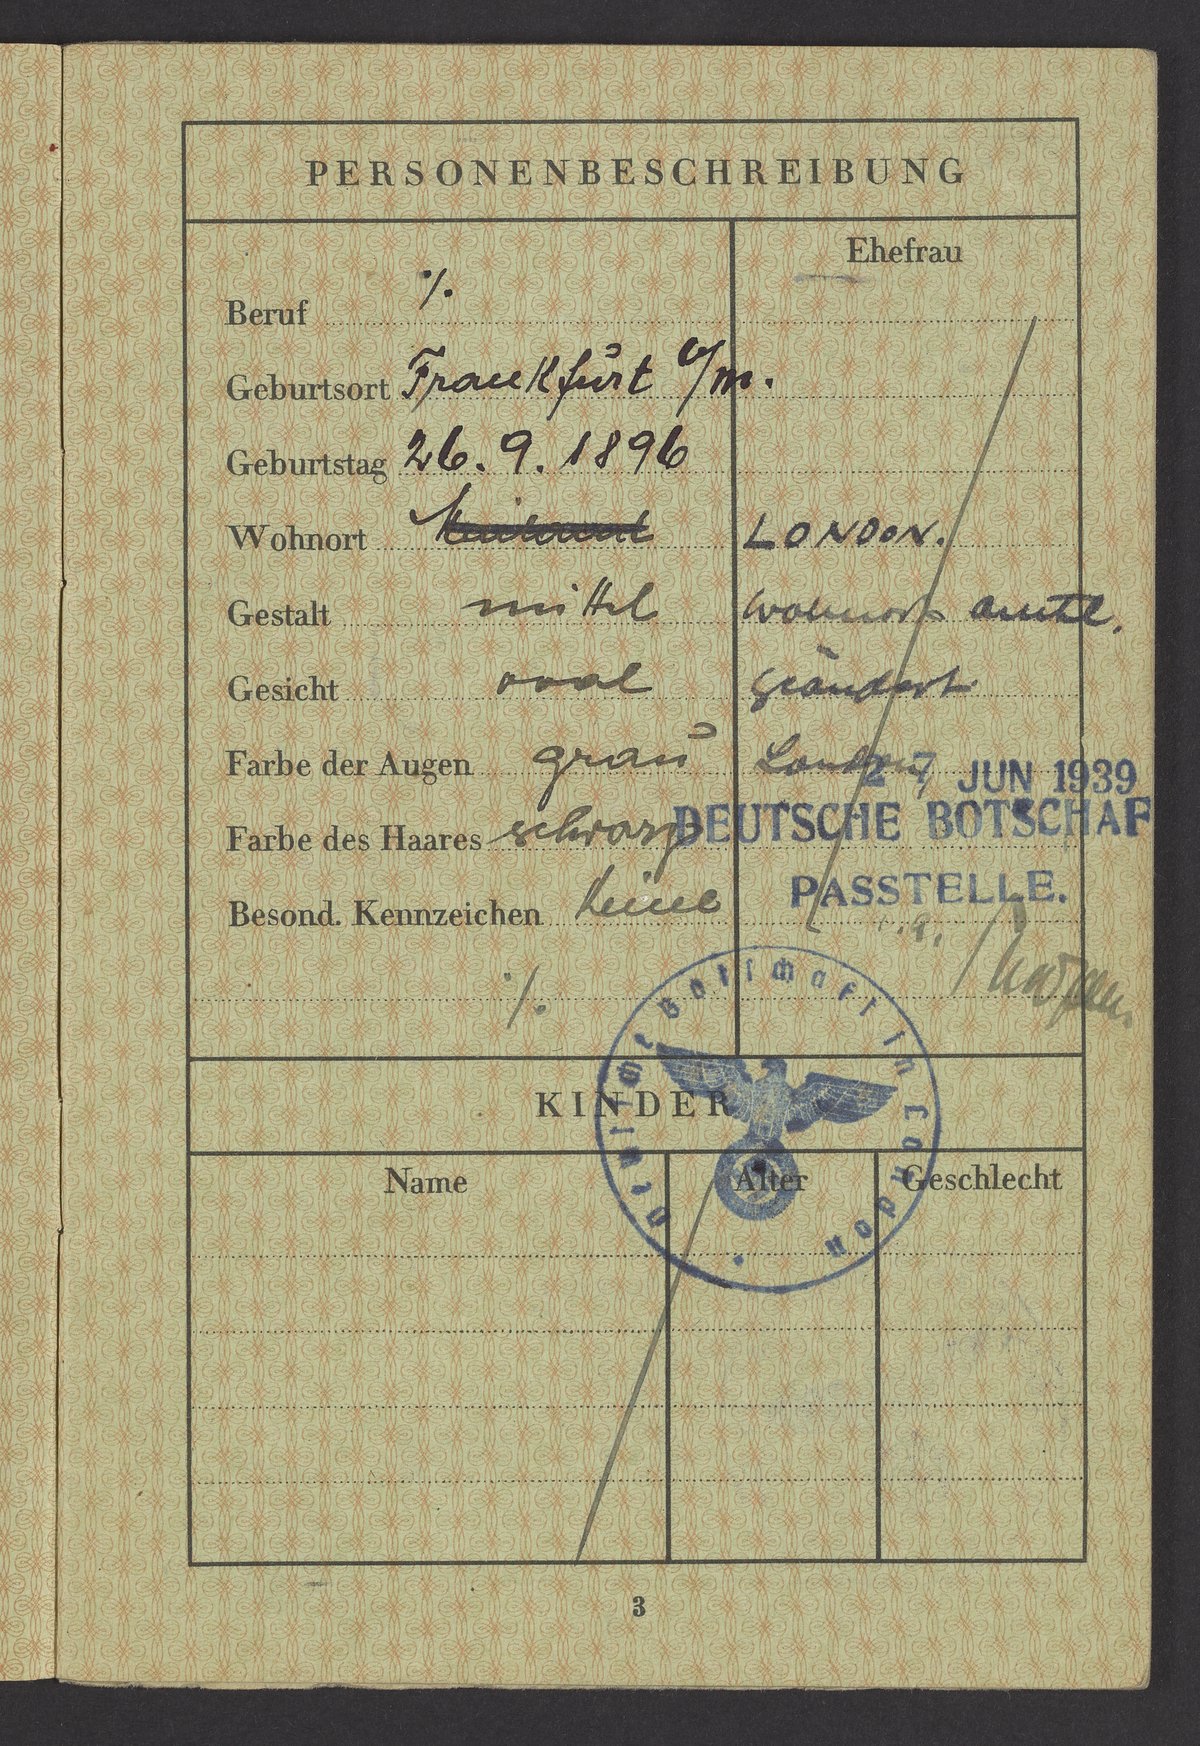 PERSONENBESCHREIBUNG
Ehefrau
Beruf ·/.
Geburtsort Frankfurt a/m.
Geburtstag 26.9.1896
Wohnort LONDON.
Gestalt mittel Wohnort amtl.
Gesicht oval geändert
Farbe der Augen grau London,
27 JUN 1939
Farbe des Haares schwarz DEUTSCHE BOTSCHAF
PASSTELLE.
Besond. Kennzeichen keine
·/.
Deutsche Botschaft in London
KINDER
Name Alter Geschlecht
3